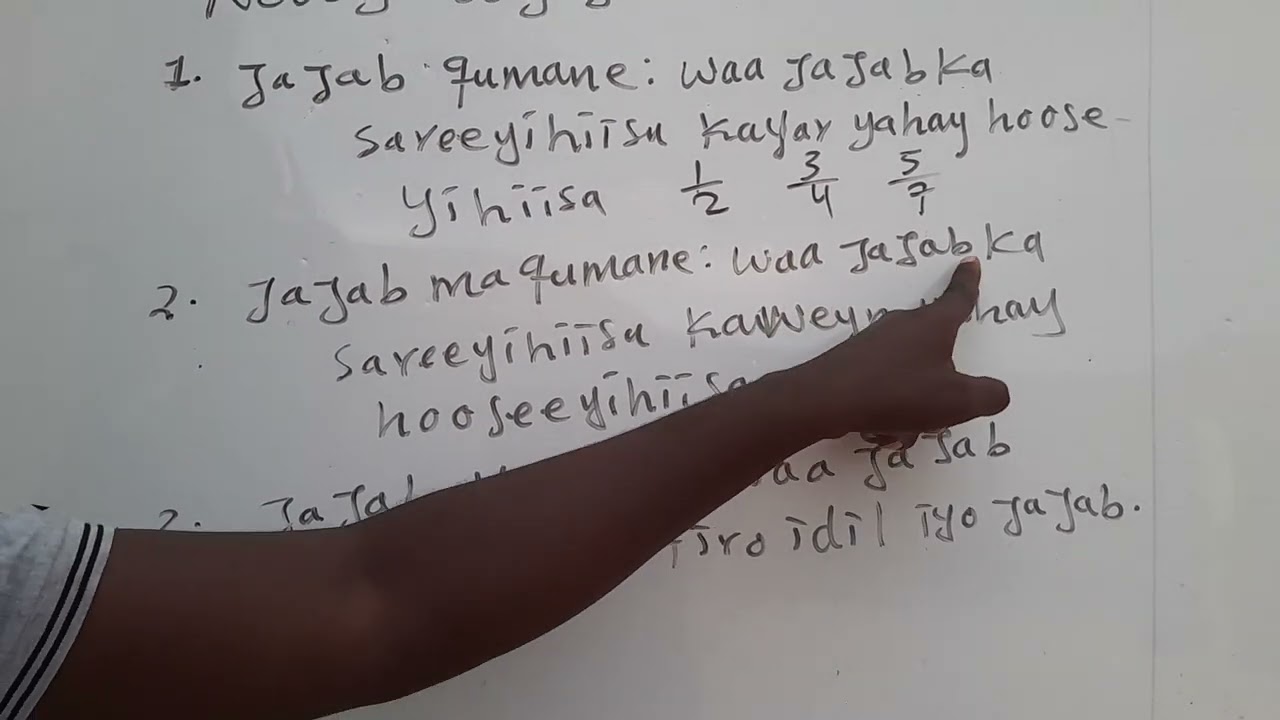 1. Jajab qumane: waa jajabka
sareeyihiisu kayar yahay hoose-
yihiisa 1/2 3/4 5/7
2. Jajab maqumane: waa jajabka
sareeyihiisu kaweyn yahay
hooseeyihiisa
3. Jajab waa jajab
tiro idil iyo jajab.